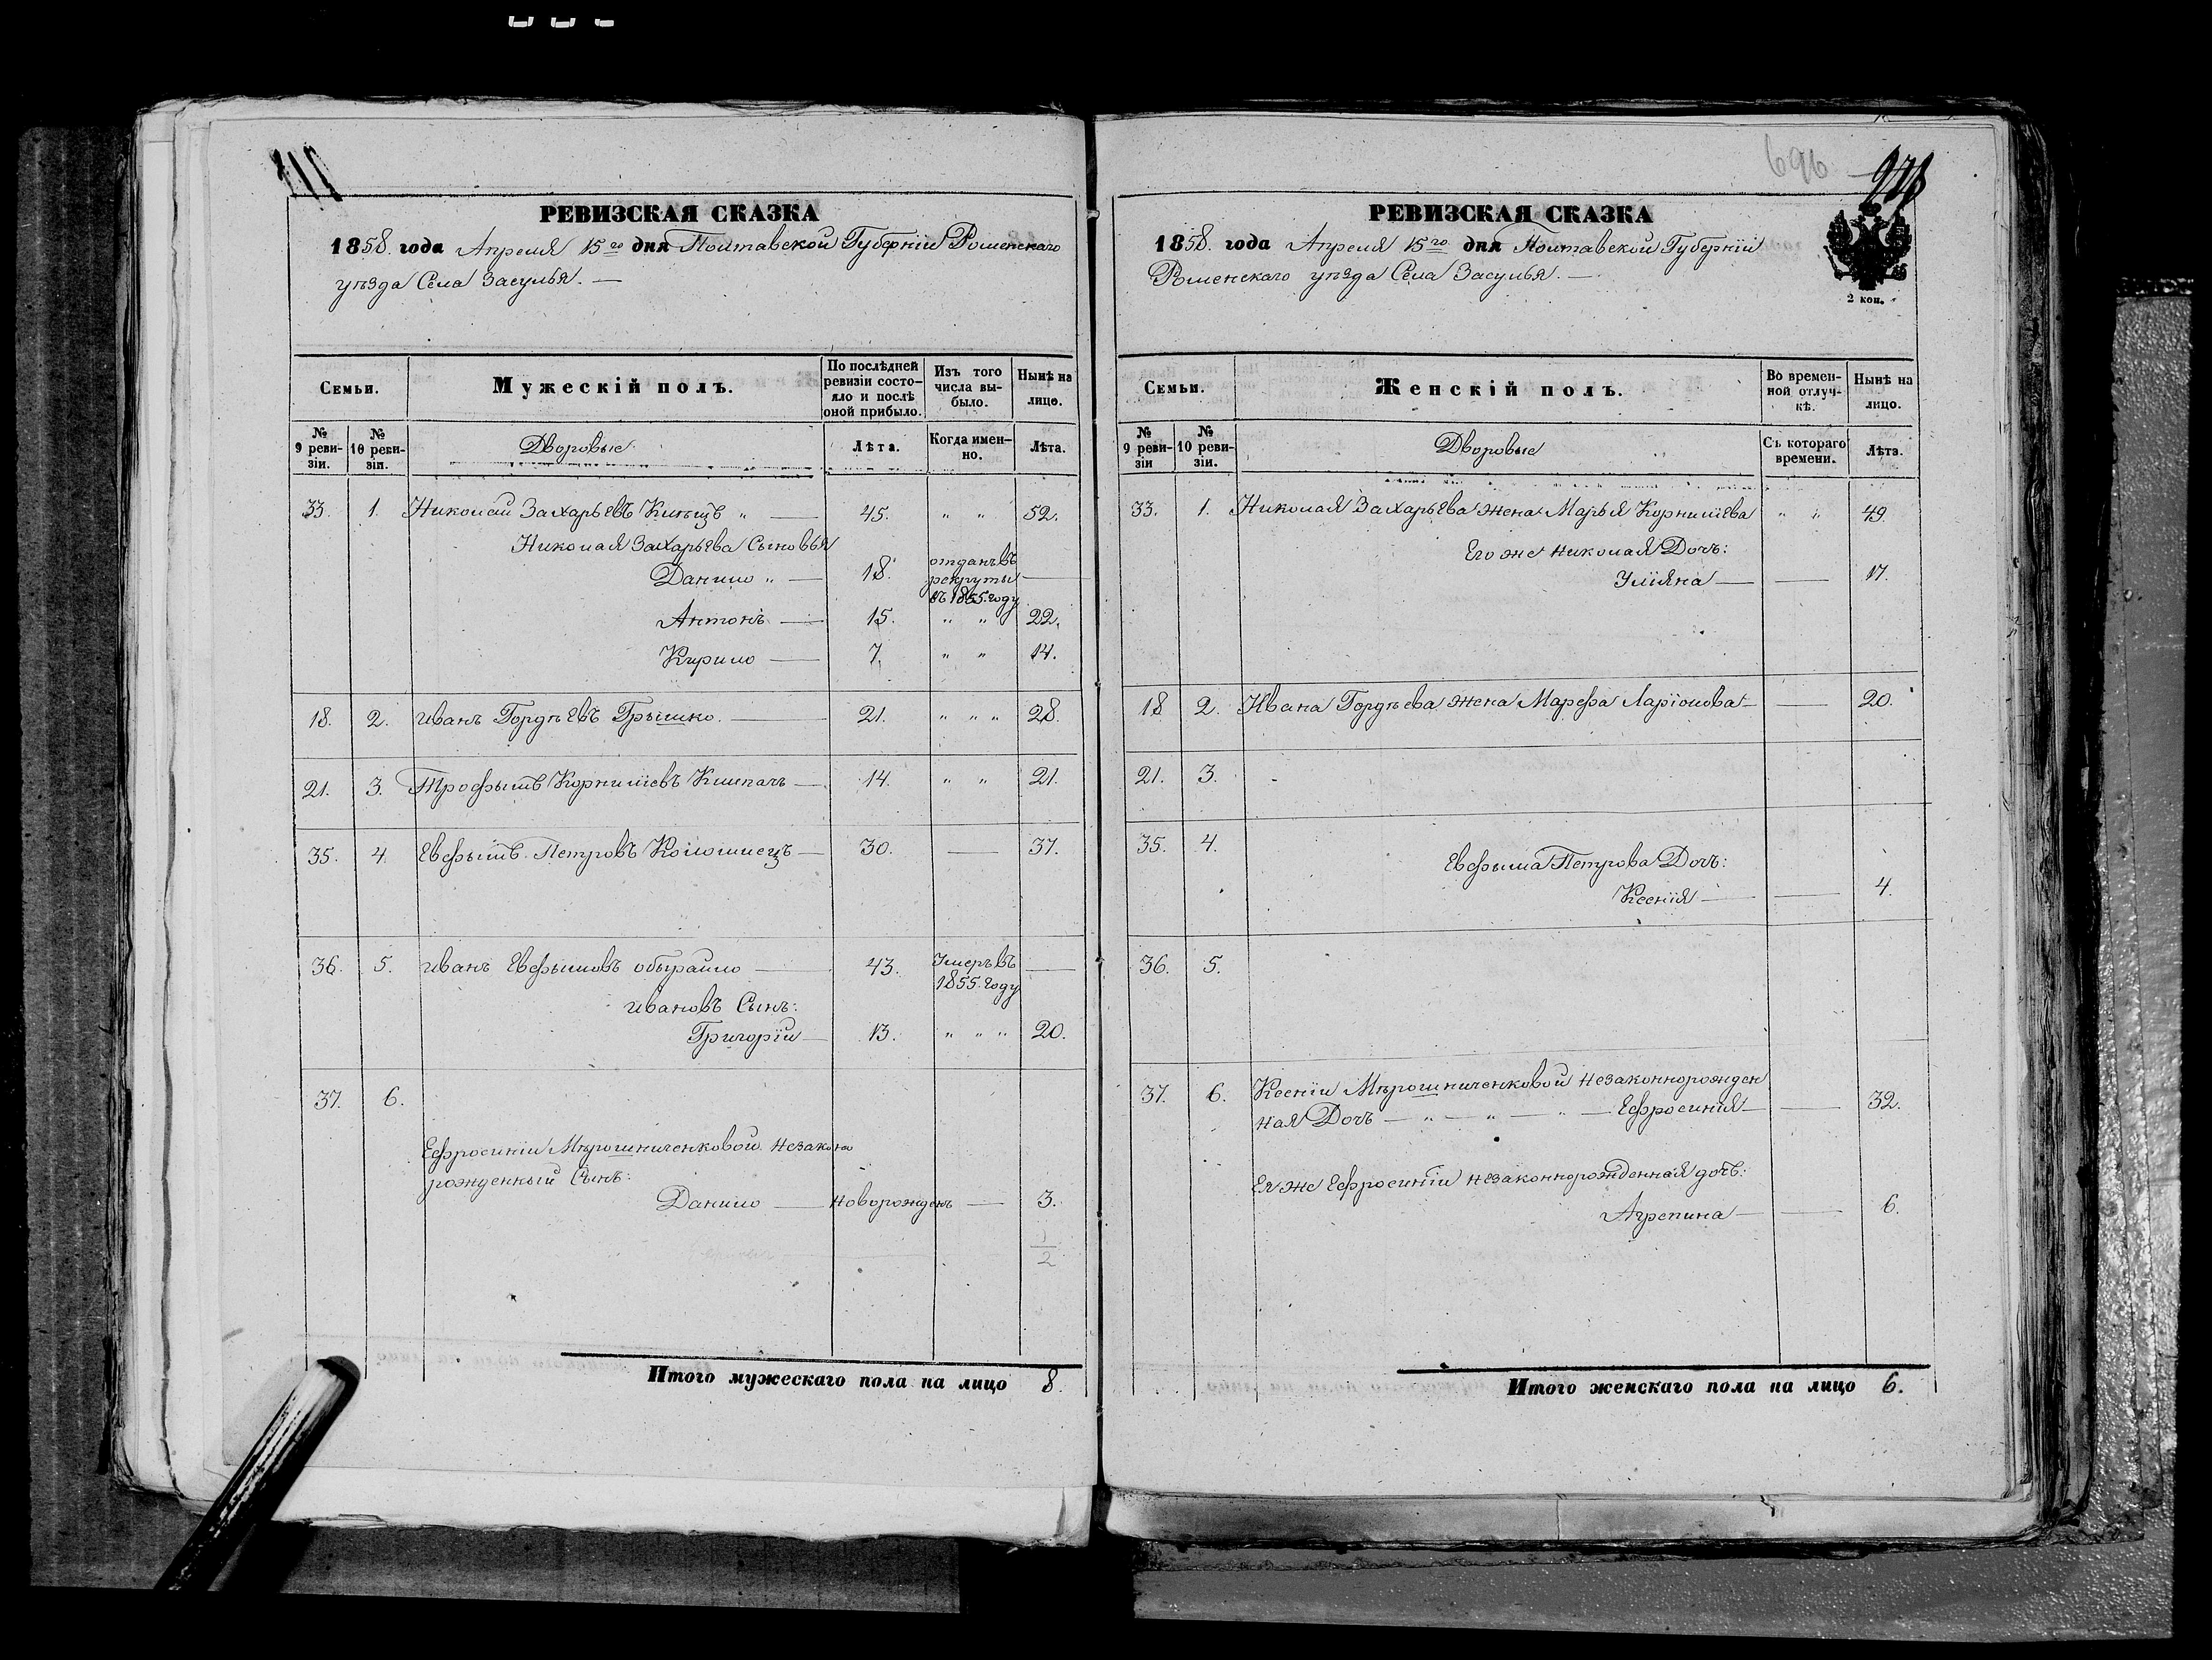 РЕВИЗСКАЯ СКАЗКА
1858. года Апреля 15го дня Полтавской Губерніи Роменскаго
уѣзда Села Засулья. —
Семьи.
Мужескій полъ.
По послѣдней
ревизіи состо-
яло и послѣ
оной прибыло.
Изъ того
числа вы-
было.
Нынѣ на
лицо.
№
9 реви-
зіи.
№
10 реви-
зіи.
Дворовые
Лѣта.
Когда имен-
но.
Лѣта.
33. 1. Николай Захарьевъ „ — 45. „ „ 52.
Николая Захарьева Сыновья
Данило „ — 18. отданъ въ
рекруты —
въ 1855. году
Антонъ — 15. „ „ 22.
Кирило — 7. „ „ 14.
18. 2. Иванъ Гордѣевъ Грышко. — 21. „ „ „ 28.
21. 3. Трофымъ Корниліевъ Клипачъ — 14. „ „ 21.
35. 4. Евфымъ Петровъ Коломіецъ — 30. — 37.
36. 5. Иванъ Евфымовъ — 43. Умеръ въ —
1855. году
Ивановъ Сынъ:
Григорій — 13. „ „ „ 20.
37. 6.
Ефросиніи Мѣрошниченковой незаконно
рожденный Сынъ:
Данило — новорожденъ — 3.
1/2
Итого мужескаго пола на лицо 8.
696
РЕВИЗСКАЯ СКАЗКА
1858. года Апреля 15го дня Полтавской Губерніи
Роменскаго уѣзда Села Засулья. —
2 коп.
Семьи.
Женскій полъ.
Во времен-
ной отлуч-
кѣ.
Нынѣ на
лицо.
№
9 реви-
зіи
№
10 реви-
зіи.
Дворовые
Съ котораго
времени.
Лѣта.
33. 1. Николая Захарьева жена Марья Корниліева „ „ 49.
Его же Николая Дочь:
Уліяна — — 17.
18 2. Ивана Гордѣева жена Марфа Ларіонова — — 20.
21. 3.
35. 4.
Евфыма Петрова Дочь:
Ксенія — — 4.
36. 5.
37. 6. Ксеніи Мѣрошниченковой незаконнорожден
ная Дочь — „ — „ — „ — Ефросинія — — 32.
Ея же Ефросиніи незаконнорожденная дочь:
Агрепина — — 6.
Итого женскаго пола на лицо 6.